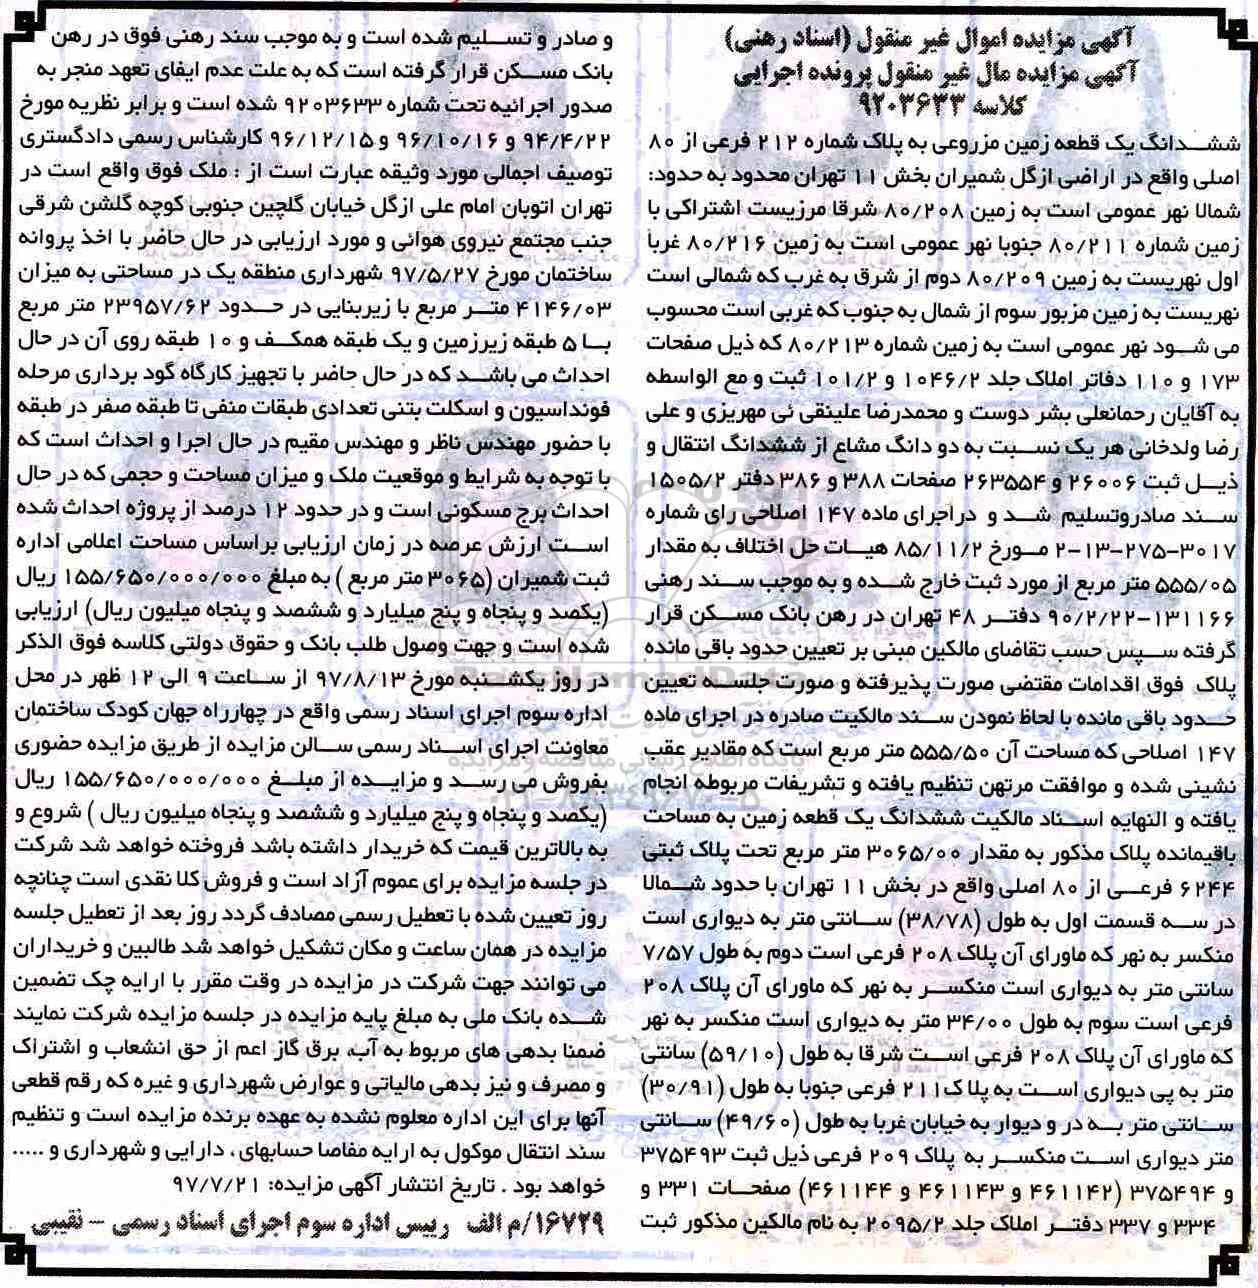 آگهی مزایده اموال غیر منقول (اسناد رهنی)
آگهی مزایده مال غیر منقول پرونده اجرایی
کلاسه ۹۲۰۳۶۳۳
ششدانگ یک قطعه زمین مزروعی به پلاک شماره ۲۱۲ فرعی از ۸۰
اصلی واقع در اراضی ازگل شمیران بخش ۱۱ تهران محدود به حدود:
شمالا نهر عمومی است به زمین ۸۰/۲۰۸ شرقا مرزیست اشتراکی با
زمین شماره ۸۰/۲۱۱ جنوبا نهر عمومی است به زمین ۸۰/۲۱۶ غربا
اول نهریست به زمین ۸۰/۲۰۹ دوم از شرق به غرب که شمالی است
نهریست به زمین مزبور سوم از شمال به جنوب که غربی است محسوب
می شود نهر عمومی است به زمین شماره ۸۰/۲۱۳ که ذیل صفحات
۱۷۳ و ۱۱۰ دفاتر املاک جلد ۱۰۴۶/۲ و ۱۰۱/۲ ثبت و مع الواسطه
به آقایان رحمانعلی بشر دوست و محمدرضا علینقی ئی مهریزی و علی
رضا ولدخانی هر یک نسبت به دو دانگ مشاع از ششدانگ انتقال و
ذیل ثبت ۲۶۰۰۶ و ۲۶۳۵۵۴ صفحات ۳۸۸ و ۳۸۶ دفتر ۱۵۰۵/۲
سند صادروتسلیم شد و دراجرای ماده ۱۴۷ اصلاحی رای شماره
۳۰۱۷-۲۷۵-۱۳-۲ مورخ ۸۵/۱۱/۲ هیات حل اختلاف به مقدار
۵۵۵/۰۵ متر مربع از مورد ثبت خارج شده و به موجب سند رهنی
۱۳۱۱۶۶-۹۰/۲/۲۲ دفتر ۴۸ تهران در رهن بانک مسکن قرار
گرفته سپس حسب تقاضای مالکین مبنی بر تعیین حدود باقی مانده
پلاک فوق اقدامات مقتضی صورت پذیرفته و صورت جلسه تعیین
حدود باقی مانده با لحاظ نمودن سند مالکیت صادره در اجرای ماده
۱۴۷ اصلاحی که مساحت آن ۵۵۵/۵۰ متر مربع است که مقادیر عقب
نشینی شده و موافقت مرتهن تنظیم یافته و تشریفات مربوطه انجام
یافته و النهایه اسناد مالکیت ششدانگ یک قطعه زمین به مساحت
باقیمانده پلاک مذکور به مقدار ۳۰۶۵/۰۰ متر مربع تحت پلاک ثبتی
۶۲۴۴ فرعی از ۸۰ اصلی واقع در بخش ۱۱ تهران با حدود شمالا
در سه قسمت اول به طول (۳۸/۷۸) سانتی متر به دیواری است
منکسر به نهر که ماورای آن پلاک ۲۰۸ فرعی است دوم به طول ۷/۵۷
سانتی متر به دیواری است منکسر به نهر که ماورای آن پلاک ۲۰۸
فرعی است سوم به طول ۳۴/۰۰ متر به دیواری است منکسر به نهر
که ماورای آن پلاک ۲۰۸ فرعی است شرقا به طول (۵۹/۱۰) سانتی
متر به پی دیواری است به پلا ک۲۱۱ فرعی جنوبا به طول (۳۰/۹۱)
سانتی متر به در و دیوار به خیابان غربا به طول (۴۹/۶۰) سانتی
متر دیواری است منکسر به پلاک ۲۰۹ فرعی ذیل ثبت ۳۷۵۴۹۳
و ۳۷۵۴۹۴ (۴۶۱۱۴۲ و ۴۶۱۱۴۳ و ۴۶۱۱۴۴) صفحات ۳۳۱ و
۳۳۴ و ۳۳۷ دفتر املاک جلد ۲۰۹۵/۲ به نام مالکین مذکور ثبت
و صادر و تسلیم شده است و به موجب سند رهنی فوق در رهن
بانک مسکن قرار گرفته است که به علت عدم ایفای تعهد منجر به
صدور اجرائیه تحت شماره ۹۲۰۳۶۳۳ شده است و برابر نظریه مورخ
۹۴/۴/۲۲ و ۹۶/۱۰/۱۶ و ۹۶/۱۲/۱۵ کارشناس رسمی دادگستری
توصیف اجمالی مورد وثیقه عبارت است از : ملک فوق واقع است در
تهران اتوبان امام علی ازگل خیابان گلچین جنوبی کوچه گلشن شرقی
جنب مجتمع نیروی هوائی و مورد ارزیابی در حال حاضر با اخذ پروانه
ساختمان مورخ ۹۷/۵/۲۷ شهرداری منطقه یک در مساحتی به میزان
۴۱۴۶/۰۳ متر مربع با زیربنایی در حدود ۲۳۹۵۷/۶۲ متر مربع
با ۵ طبقه زیرزمین و یک طبقه همکف و ۱۰ طبقه روی آن در حال
احداث می باشد که در حال حاضر با تجهیز کارگاه گود برداری مرحله
فونداسیون و اسکلت بتنی تعدادی طبقات منفی تا طبقه صفر در طبقه
با حضور مهندس ناظر و مهندس مقیم در حال اجرا و احداث است که
با توجه به شرایط و موقعیت ملک و میزان مساحت و حجمی که در حال
احداث برج مسکونی است و در حدود ۱۲ درصد از پروژه احداث شده
است ارزش عرصه در زمان ارزیابی براساس مساحت اعلامی اداره
ثبت شمیران (۳۰۶۵ متر مربع ) به مبلغ ۱۵۵/۶۵۰/۰۰۰/۰۰۰ ریال
(یکصد و پنجاه و پنج میلیارد و ششصد و پنجاه میلیون ریال) ارزیابی
شده است و جهت وصول طلب بانک و حقوق دولتی کلاسه فوق الذکر
در روز یکشنبه مورخ ۹۷/۸/۱۳ از ساعت ۹ الی ۱۲ ظهر در محل
اداره سوم اجرای اسناد رسمی واقع در چهارراه جهان کودک ساختمان
معاونت اجرای اسناد رسمی سالن مزایده از طریق مزایده حضوری
بفروش می رسد و مزایده از مبلغ ۱۵۵/۶۵۰/۰۰۰/۰۰۰ ریال
(یکصد و پنجاه و پنج میلیارد و ششصد و پنجاه میلیون ریال ) شروع و
به بالاترین قیمت که خریدار داشته باشد فروخته خواهد شد شرکت
در جلسه مزایده برای عموم آزاد است و فروش کلا نقدی است چنانچه
روز تعیین شده با تعطیل رسمی مصادف گردد روز بعد از تعطیل جلسه
مزایده در همان ساعت و مکان تشکیل خواهد شد طالبین و خریداران
می توانند جهت شرکت در مزایده در وقت مقرر با ارایه چک تضمین
شده بانک ملی به مبلغ پایه مزایده در جلسه مزایده شرکت نمایند
ضمنا بدهی های مربوط به آب، برق گاز اعم از حق انشعاب و اشتراک
و مصرف و نیز بدهی مالیاتی و عوارض شهرداری و غیره که رقم قطعی
آنها برای این اداره معلوم نشده به عهده برنده مزایده است و تنظیم
سند انتقال موکول به ارایه مفاصا حسابهای، دارایی و شهرداری و .....
خواهد بود . تاریخ انتشار آگهی مزایده: ۹۷/۷/۲۱
۱۶۷۲۹/م الف رییس اداره سوم اجرای اسناد رسمی – نقیبی
پایگاه اطلاع رسانی مناقصه و مزایده